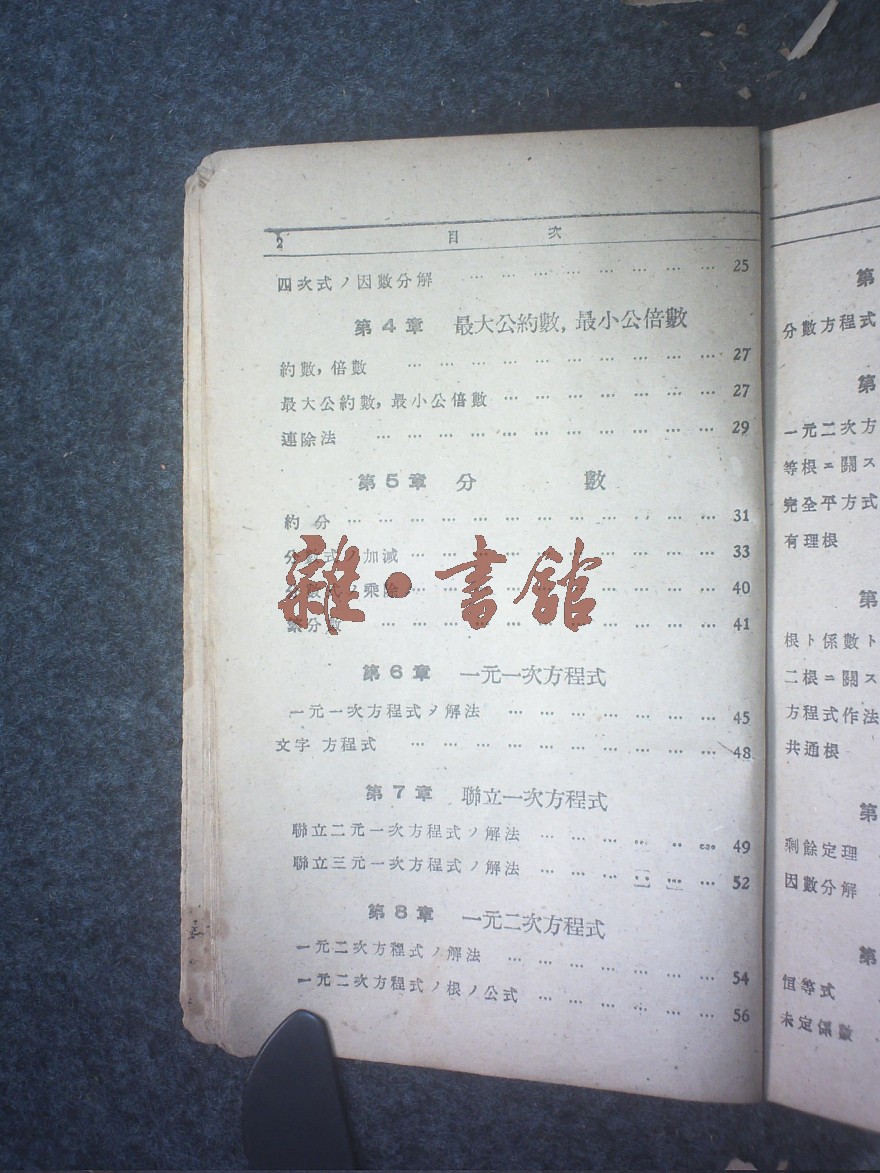 2 目 次
四次式ノ因數分解 … … … … … … … … … 25
第4章 最大公約數, 最小公倍數
約數, 倍數 … … … … … … … … … … 27
最大公約數, 最小公倍數 … … … … … … … 27
連除法 … … … … … … … … … … … 29
第5章 分 數
約 分 … … … … … … … … … … … … 31
分數式ノ加減 … … … … … … … … … … 33
分數式ノ乘除 … … … … … … … … … … 40
繁分數 … … … … … … … … … … … 41
雜·書館
第6章 一元一次方程式
一元一次方程式ノ解法 … … … … … … … 45
文字 方程式 … … … … … … … … … … 48
第7章 聯立一次方程式
聯立二元一次方程式ノ解法 … … … … … … 49
聯立三元一次方程式ノ解法 … … … … … … 52
第8章 一元二次方程式
一元二次方程式ノ解法 … … … … … … … 54
一元二次方程式ノ根ノ公式 … … … … … … 56
第
分數方程式
第
一元二次方
等根ニ關ス
完全平方式
有理根
第
根ト係數ト
二根ニ關ス
方程式作法
共通根
第
剩餘定理
因數分解
第
恒等式
未定係數